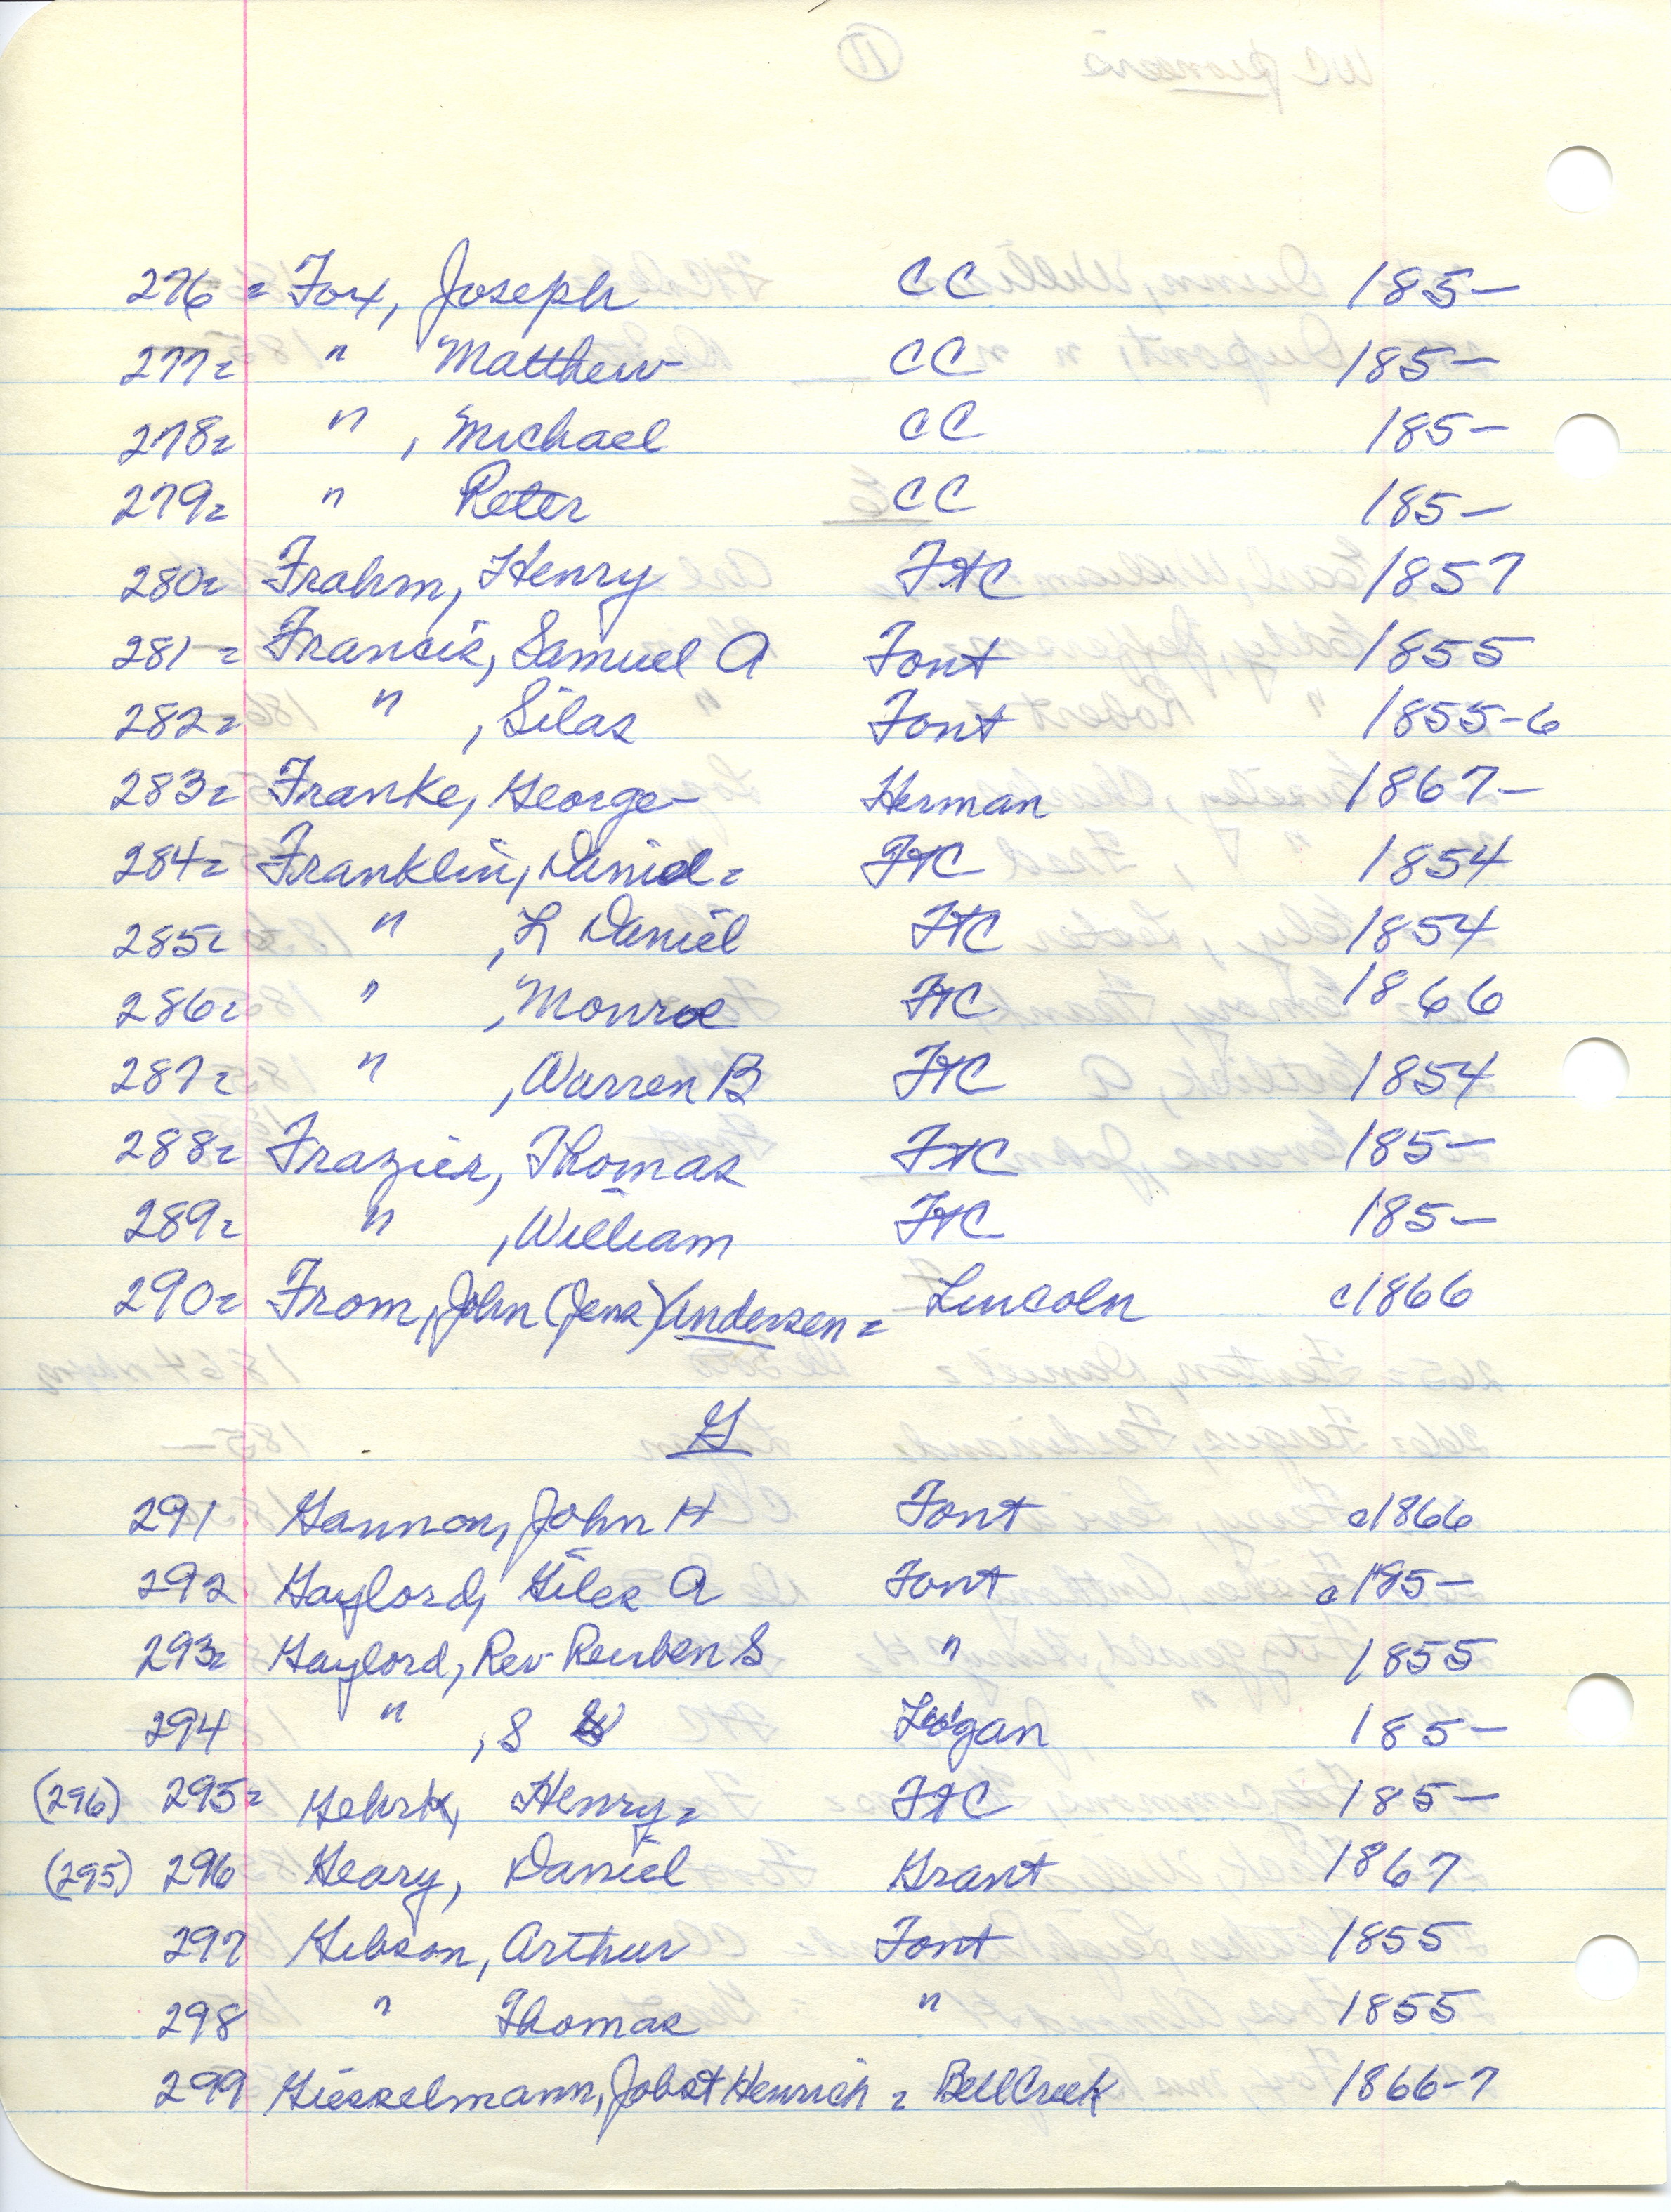 276 = Fox, Joseph CC 185-
277= " Matthew CC 185-
278= " , Michael CC 185-
279= " Peter CC 185-
280= Frahm, Henry FtC 1857
281 = Francis, Samuel A Font 1855
282= " , Silas Font 1855-6
283= Franke, George- Herman 1867-
284= Franklin, Daniel= FtC 1854
285= " , L Daniel FtC 1854
286= " , Monroe FtC 1866
287= " , Warren B FtC 1854
288= Frazier, Thomas FtC 185-
289= " , William FtC 185-
290= From, John (Jens) Andersen = Lincoln c1866
G
291 Gannon, John H Font c1866
292 Gaylord, Giles A Font c185-
293= Gaylord, Rev Reuben S " 1855
294 " , S W Logan 185-
(296) 295= Gehrk, Henry= FtC 185-
(295) 296 Geary, Daniel Grant 1867
297 Gibson, Arthur Font 1855
298 " Thomas " 1855
299 Giesselmann, Jobst Henrich = Bell Creek 1866-7